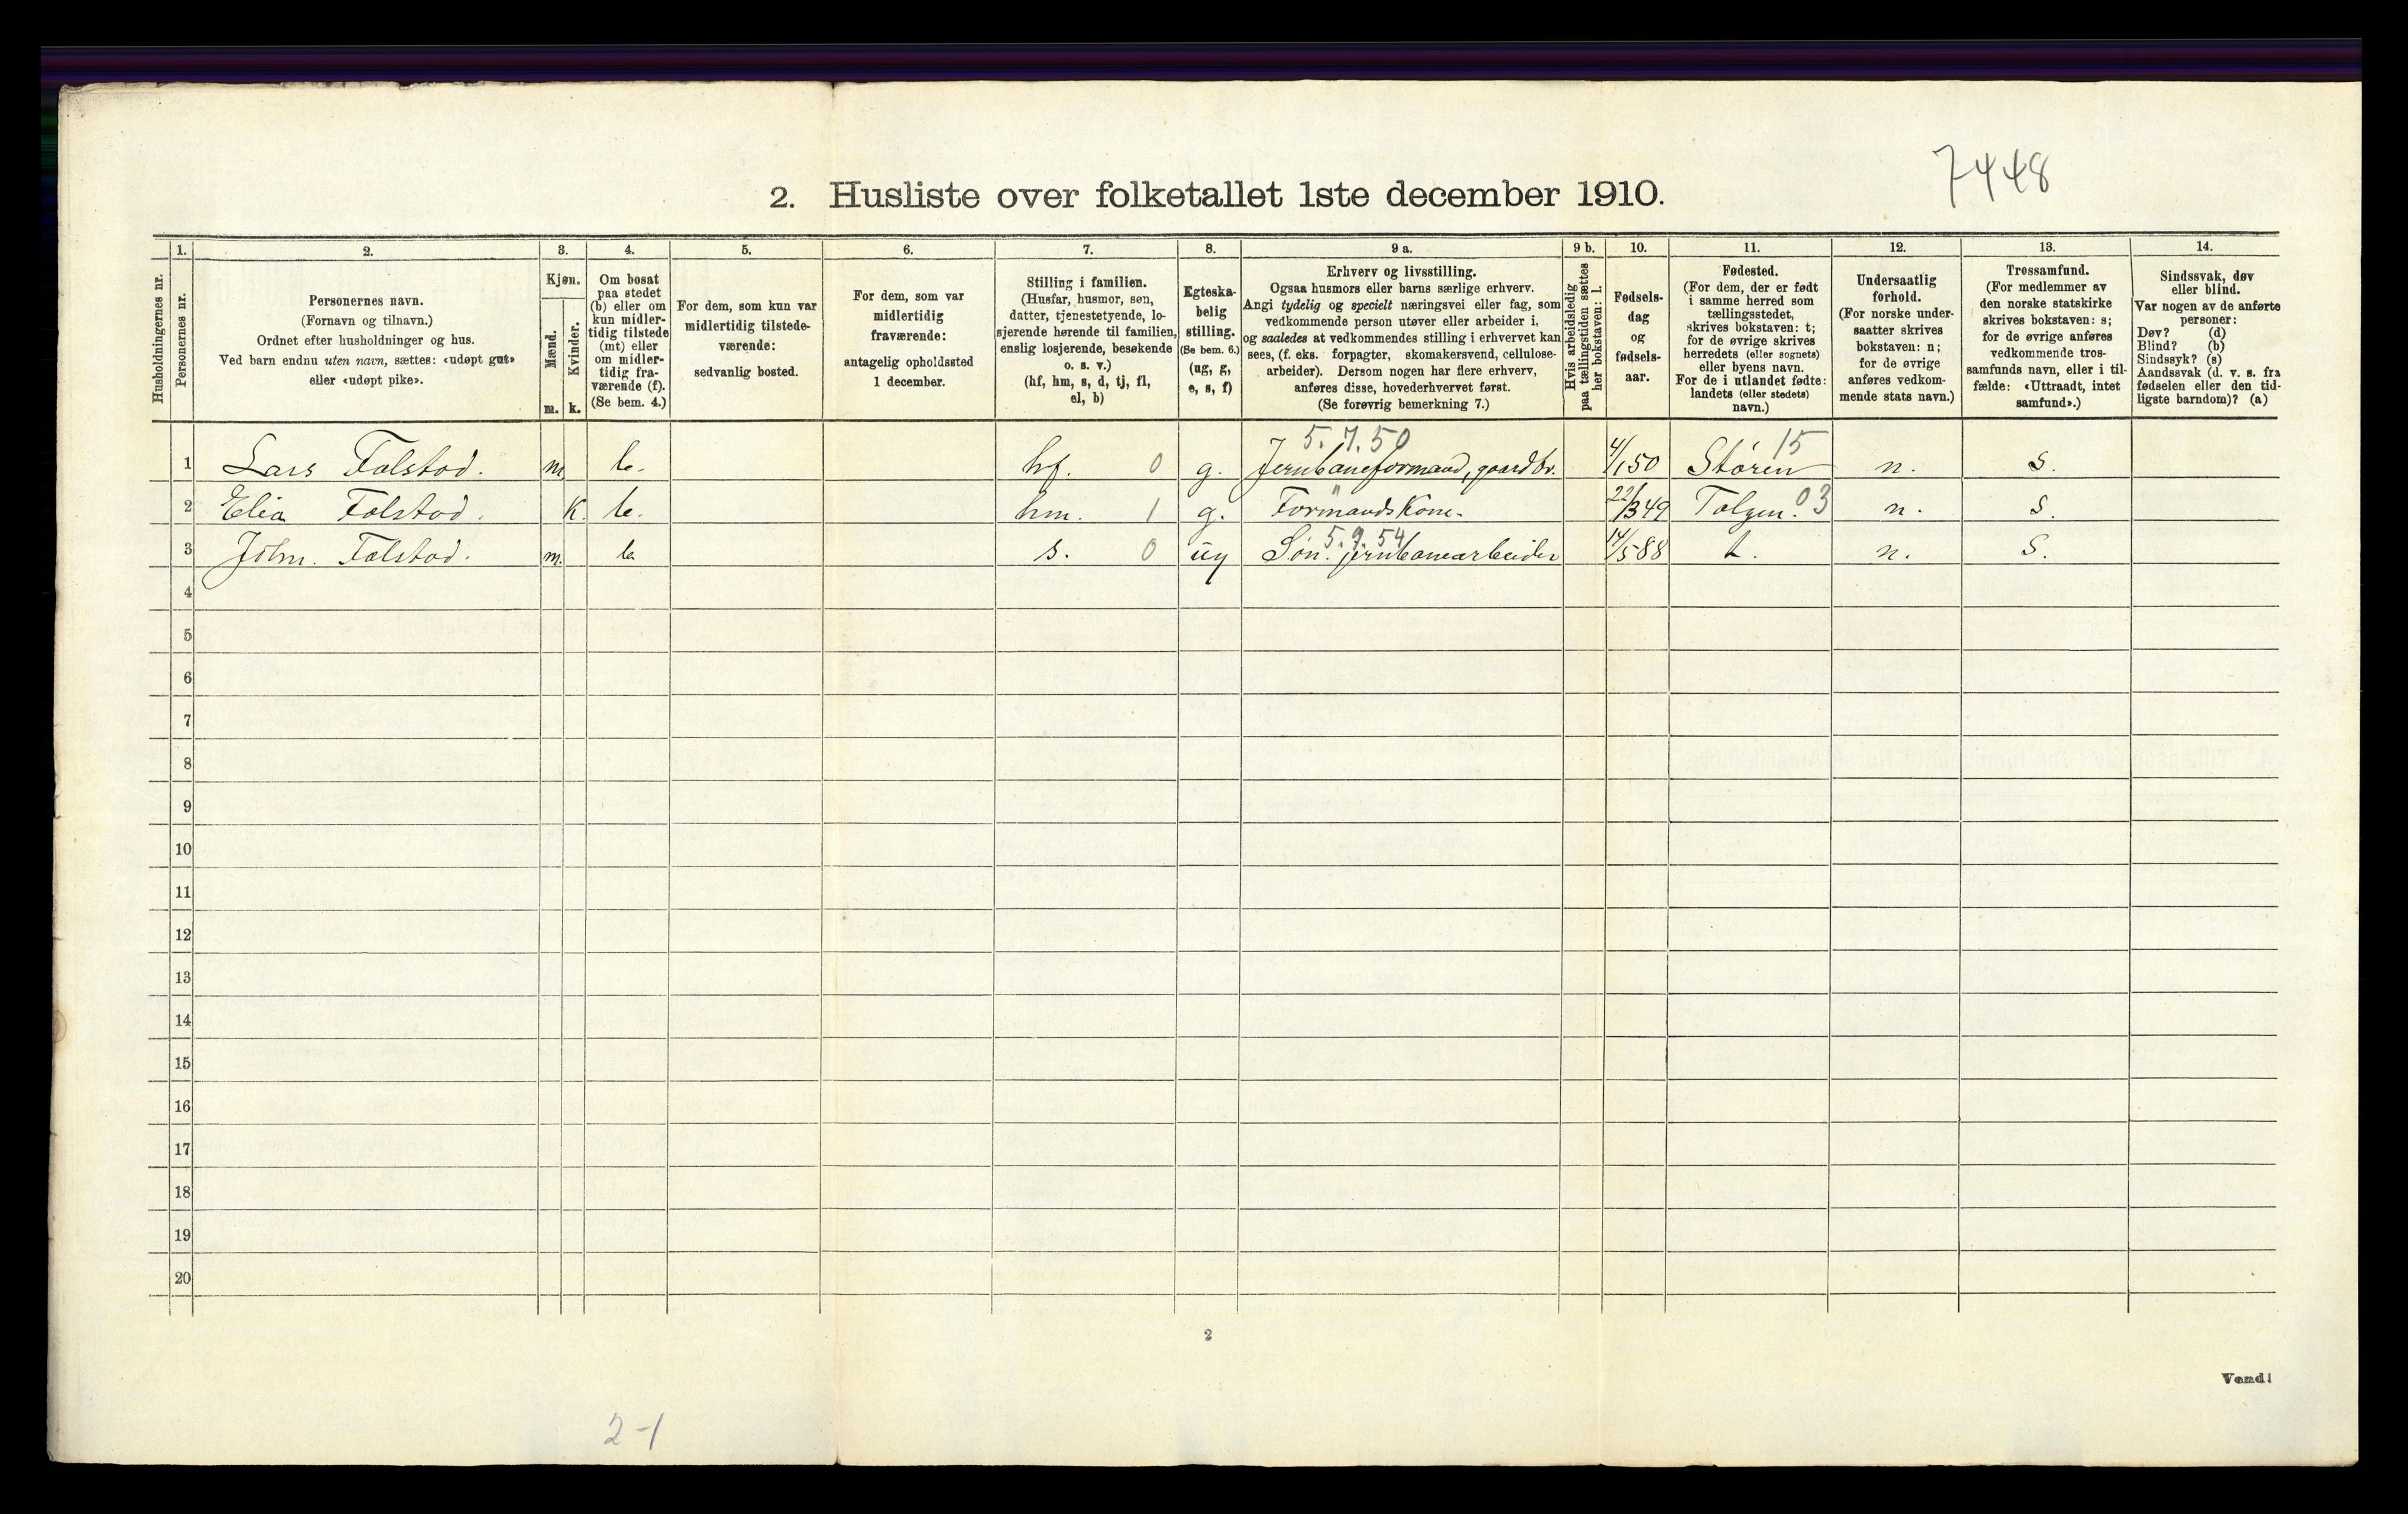 7448
2. Husliste over folketallet 1ste december 1910.
Husholdningernes nr.
1.
Personernes nr.
2.
Personernes navn.
(Fornavn og tilnavn.)
Ordnet efter husholdninger og hus.
Ved barn endnu uten navn, sættes: «udøpt gut»
eller «udøpt pike».
3.
Kjøn.
Mænd.
Kvinder.
m. k.
4.
Om bosat
paa stedet
(b) eller om
kun midler-
tidig tilstede
(mt) eller
om midler-
tidig fra-
værende (f).
(Se bem. 4.)
5.
For dem, som kun var
midlertidig tilstede-
værende:
sedvanlig bosted.
6.
For dem, som var
midlertidig
fraværende:
antagelig opholdssted
1 december.
7.
Stilling i familien.
(Husfar, husmor, søn,
datter, tjenestetyende, lo-
sjerende hørende til familien,
enslig losjerende, besøkende
o. s. v.)
(hf, hm, s, d, tj, fl,
el, b)
8.
Egteska-
belig
stilling.
(Se bem. 6.)
(ug, g,
e, s, f)
9 a.
Erhverv og livsstilling.
Ogsaa husmors eller barns særlige erhverv.
Angi tydelig og specielt næringsvei eller fag, som
vedkommende person utøver eller arbeider i,
og saaledes at vedkommendes stilling i erhvervet kan
sees, (f. eks. forpagter, skomakersvend, cellulose-
arbeider). Dersom nogen har flere erhverv,
anføres disse, hovederhvervet først.
(Se forøvrig bemerkning 7.)
9 b.
Hvis arbeidsledig
paa tællingstiden sættes
her bokstaven: l.
10.
Fødsels-
dag
og
fødsels-
aar.
11.
Fødested.
(For dem, der er født
i samme herred som
tællingsstedet,
skrives bokstaven: t;
for de øvrige skrives
herredets (eller sognets)
eller byens navn.
For de i utlandet fødte:
landets (eller stedets)
navn.)
12.
Undersaatlig
forhold.
(For norske under-
saatter skrives
bokstaven: n;
for de øvrige
anføres vedkom-
mende stats navn.)
13.
Trossamfund.
(For medlemmer av
den norske statskirke
skrives bokstaven: s;
for de øvrige anføres
vedkommende tros-
samfunds navn, eller i til-
fælde: «Uttraadt, intet
samfund».)
14.
Sindssvak, døv
eller blind.
Var nogen av de anførte
personer:
Døv? (d)
Blind? (b)
Sindssyk? (s)
Aandssvak (d. v. s. fra
fødselen eller den tid-
ligste barndom)? (a)
5. 7. 50 15
1 Lars Folstad. m b. hf. 0 g. Jernbaneformand, gaardbr. 4/1 50 Støren n. s.
2 Elia Folstad. k. b. hm. 1 g. Formands Kone. 22/3 49 Tolgen. 03 n. s.
5. 9. 54
3 John. Folstad. m. b. s. 0 ug Søn. jernbanearbeider 14/5 88 t. n. s.
4
5
6
7
8
9
10
11
12
13
14
15
16
17
18
19
20
2
Vend!
2-1